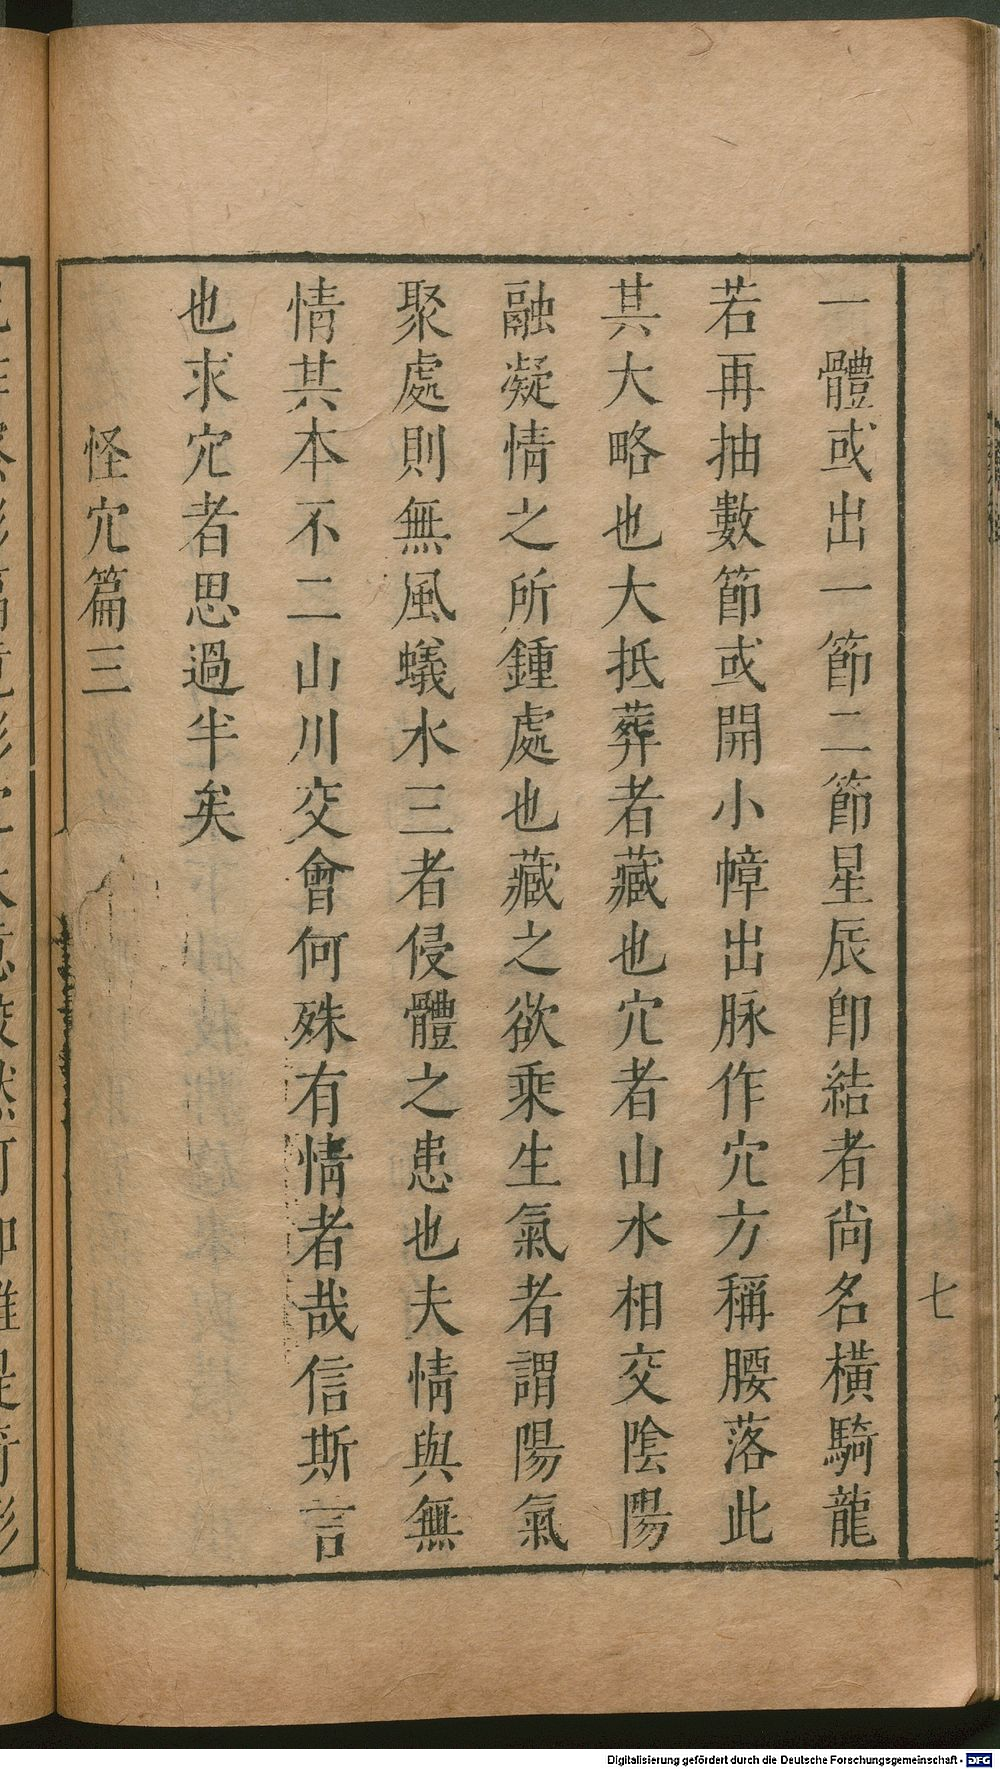 一體或出一節二節星辰卽結者尙名橫騎龍
若再抽數節或開小幛出脉作穴方稱腰落此
其大略也大抵葬者藏也穴者山水相交陰陽
融凝情之所鍾處也藏之欲乘生氣者謂陽氣
聚處則無風蟻水三者侵體之患也夫情與無
情其本不二山川交會何殊有情者哉信斯言
也求穴者思過半矣
怪穴篇三
七
Digitalisierung gefördert durch die Deutsche Forschungsgemeinschaft - DFG